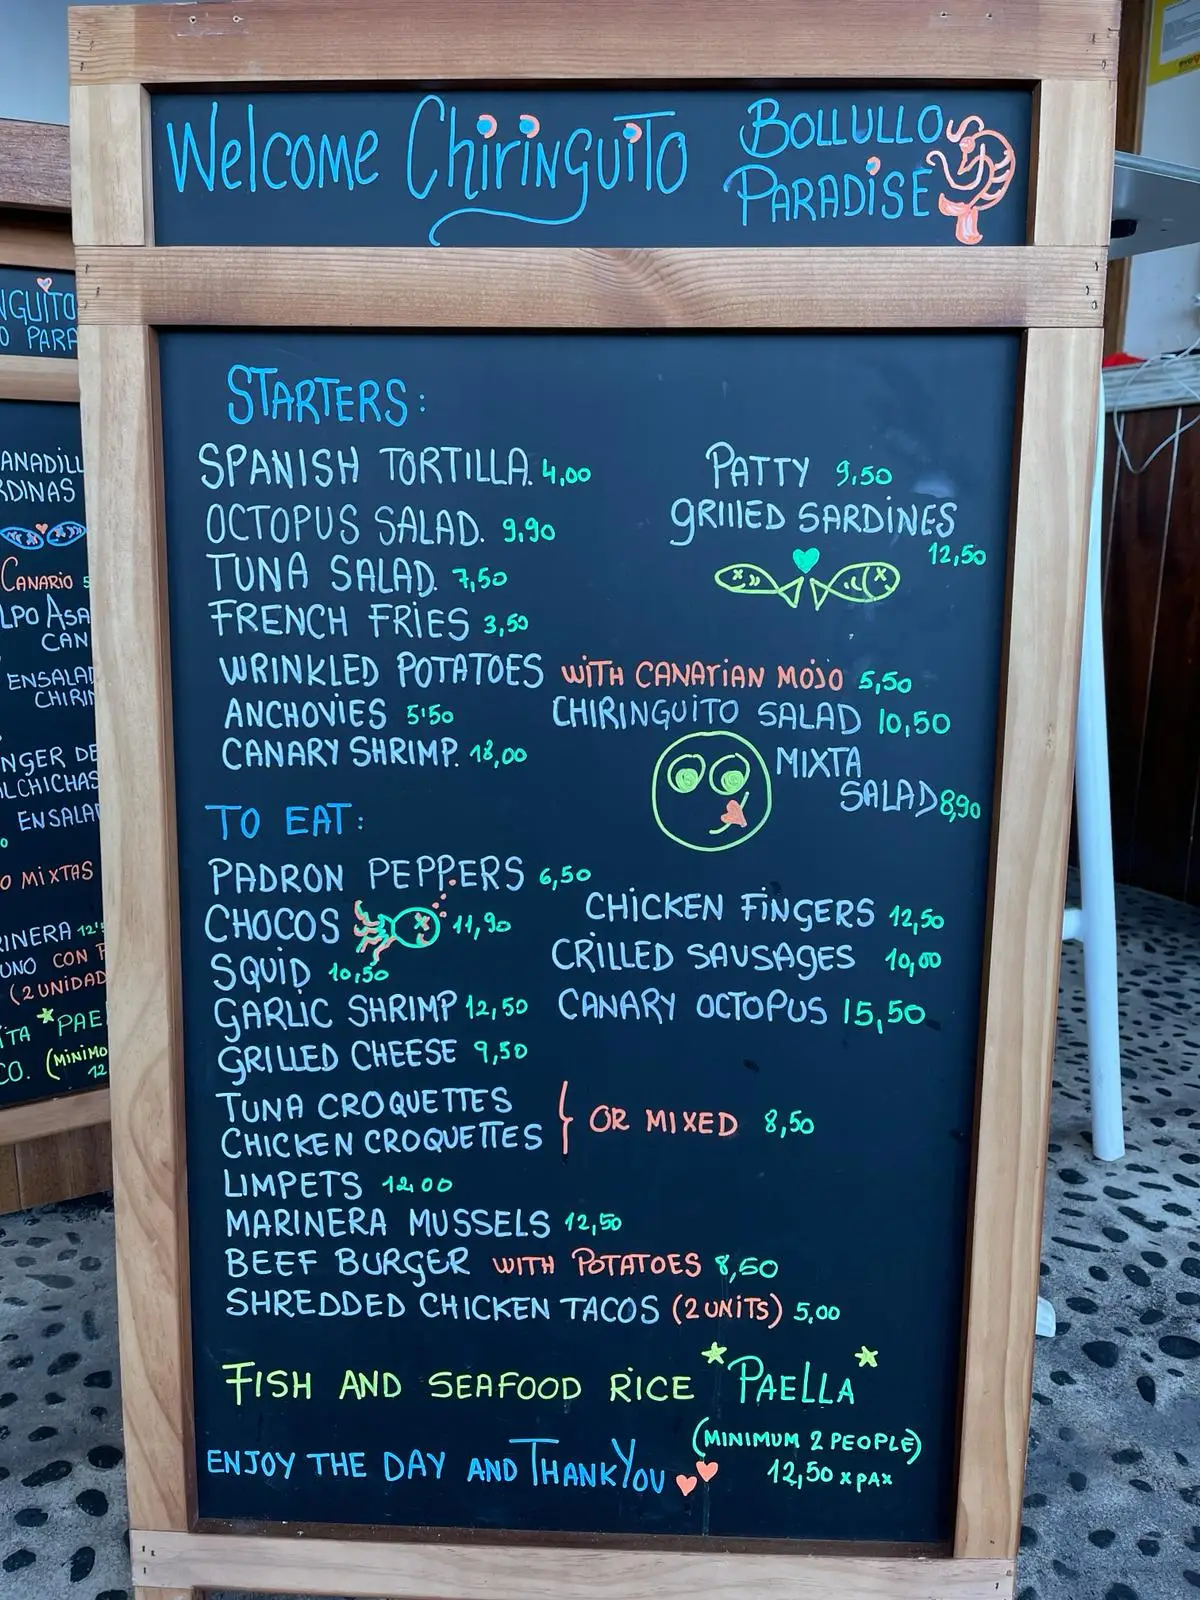 Welcome Chiringuito
BOLLULLO
PARADISE
STARTERS:
SPANISH TORTILLA. 4,00
OCTOPUS SALAD. 9,90
TUNA SALAD. 7,50
FRENCH FRIES 3,50
WRINKLED POTATOES WITH CANARIAN MOJO 5,50
ANCHOVIES 5'50
CANARY SHRIMP. 18,00
PATTY 9,50
GRIllED SARDINES
12,50
CHIRINGUITO SALAD 10,50
MIXTA
SALAD 8,90
TO EAT:
PADRON PEPPERS 6,50
CHOCOS 11,90
SQUID 10,50
GARLIC SHRIMP 12,50
GRILLED CHEESE 9,50
CHICKEN FINGERS 12,50
CRILLED SAUSAGES 10,00
CANARY OCTOPUS 15,50
TUNA CROQUETTES
CHICKEN CROQUETTES } OR MIXED 8,50
LIMPETS 12,00
MARINERA MUSSELS 12,50
BEEF BURGER WITH POTATOES 8,50
SHREDDED CHICKEN TACOS (2 UNITS) 5,00
FISH AND SEAFOOD RICE *PAELLA*
(MINIMUM 2 PEOPLE)
12,50 x PAX
ENJOY THE DAY AND THANK YOU
NGUITO
O PARA
ANADILL
RDINAS
CANARIO 5
LPO ASA
CAN
ENSALAD
CHIRIN
NGER DE
ALCHICHAS
ENSALA
O MIXTAS
RINERA 12'
UNO CON P
(2 UNIDAD
ITA *PAE
CO. (MINIMO
12